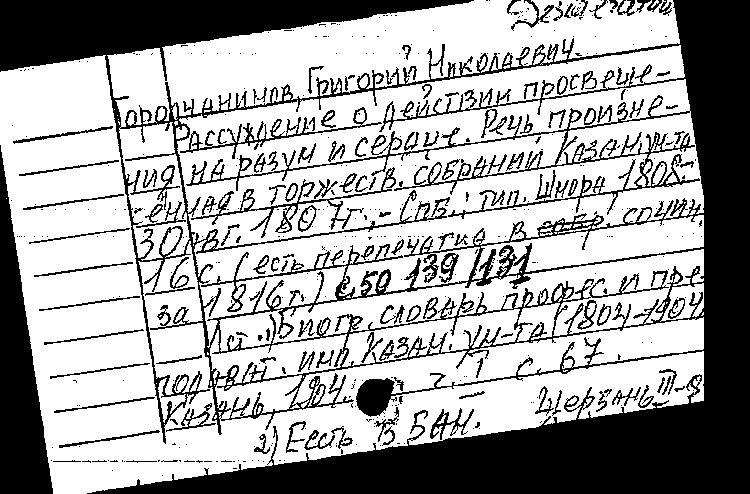 Городчанинов, Григорий Николаевич.
Рассуждение о действии просвеще-
ния на разум и сердце. Речь произне-
сённая в торжеств. собрании Казан. ун-та
30 авг. 1807 г. - СПб.: тип. Шнора, 1808.-
16 с. (есть перепечатка в собр. сочин.
за 1816 г.) с.50 139 /131
Ист.: 1) Биогр. словарь профес. и пре-
подават. имп. Казан. ун-та (1804-1904)
Казань, 1904. ч. I с. 67.
2) Есть в БАН.